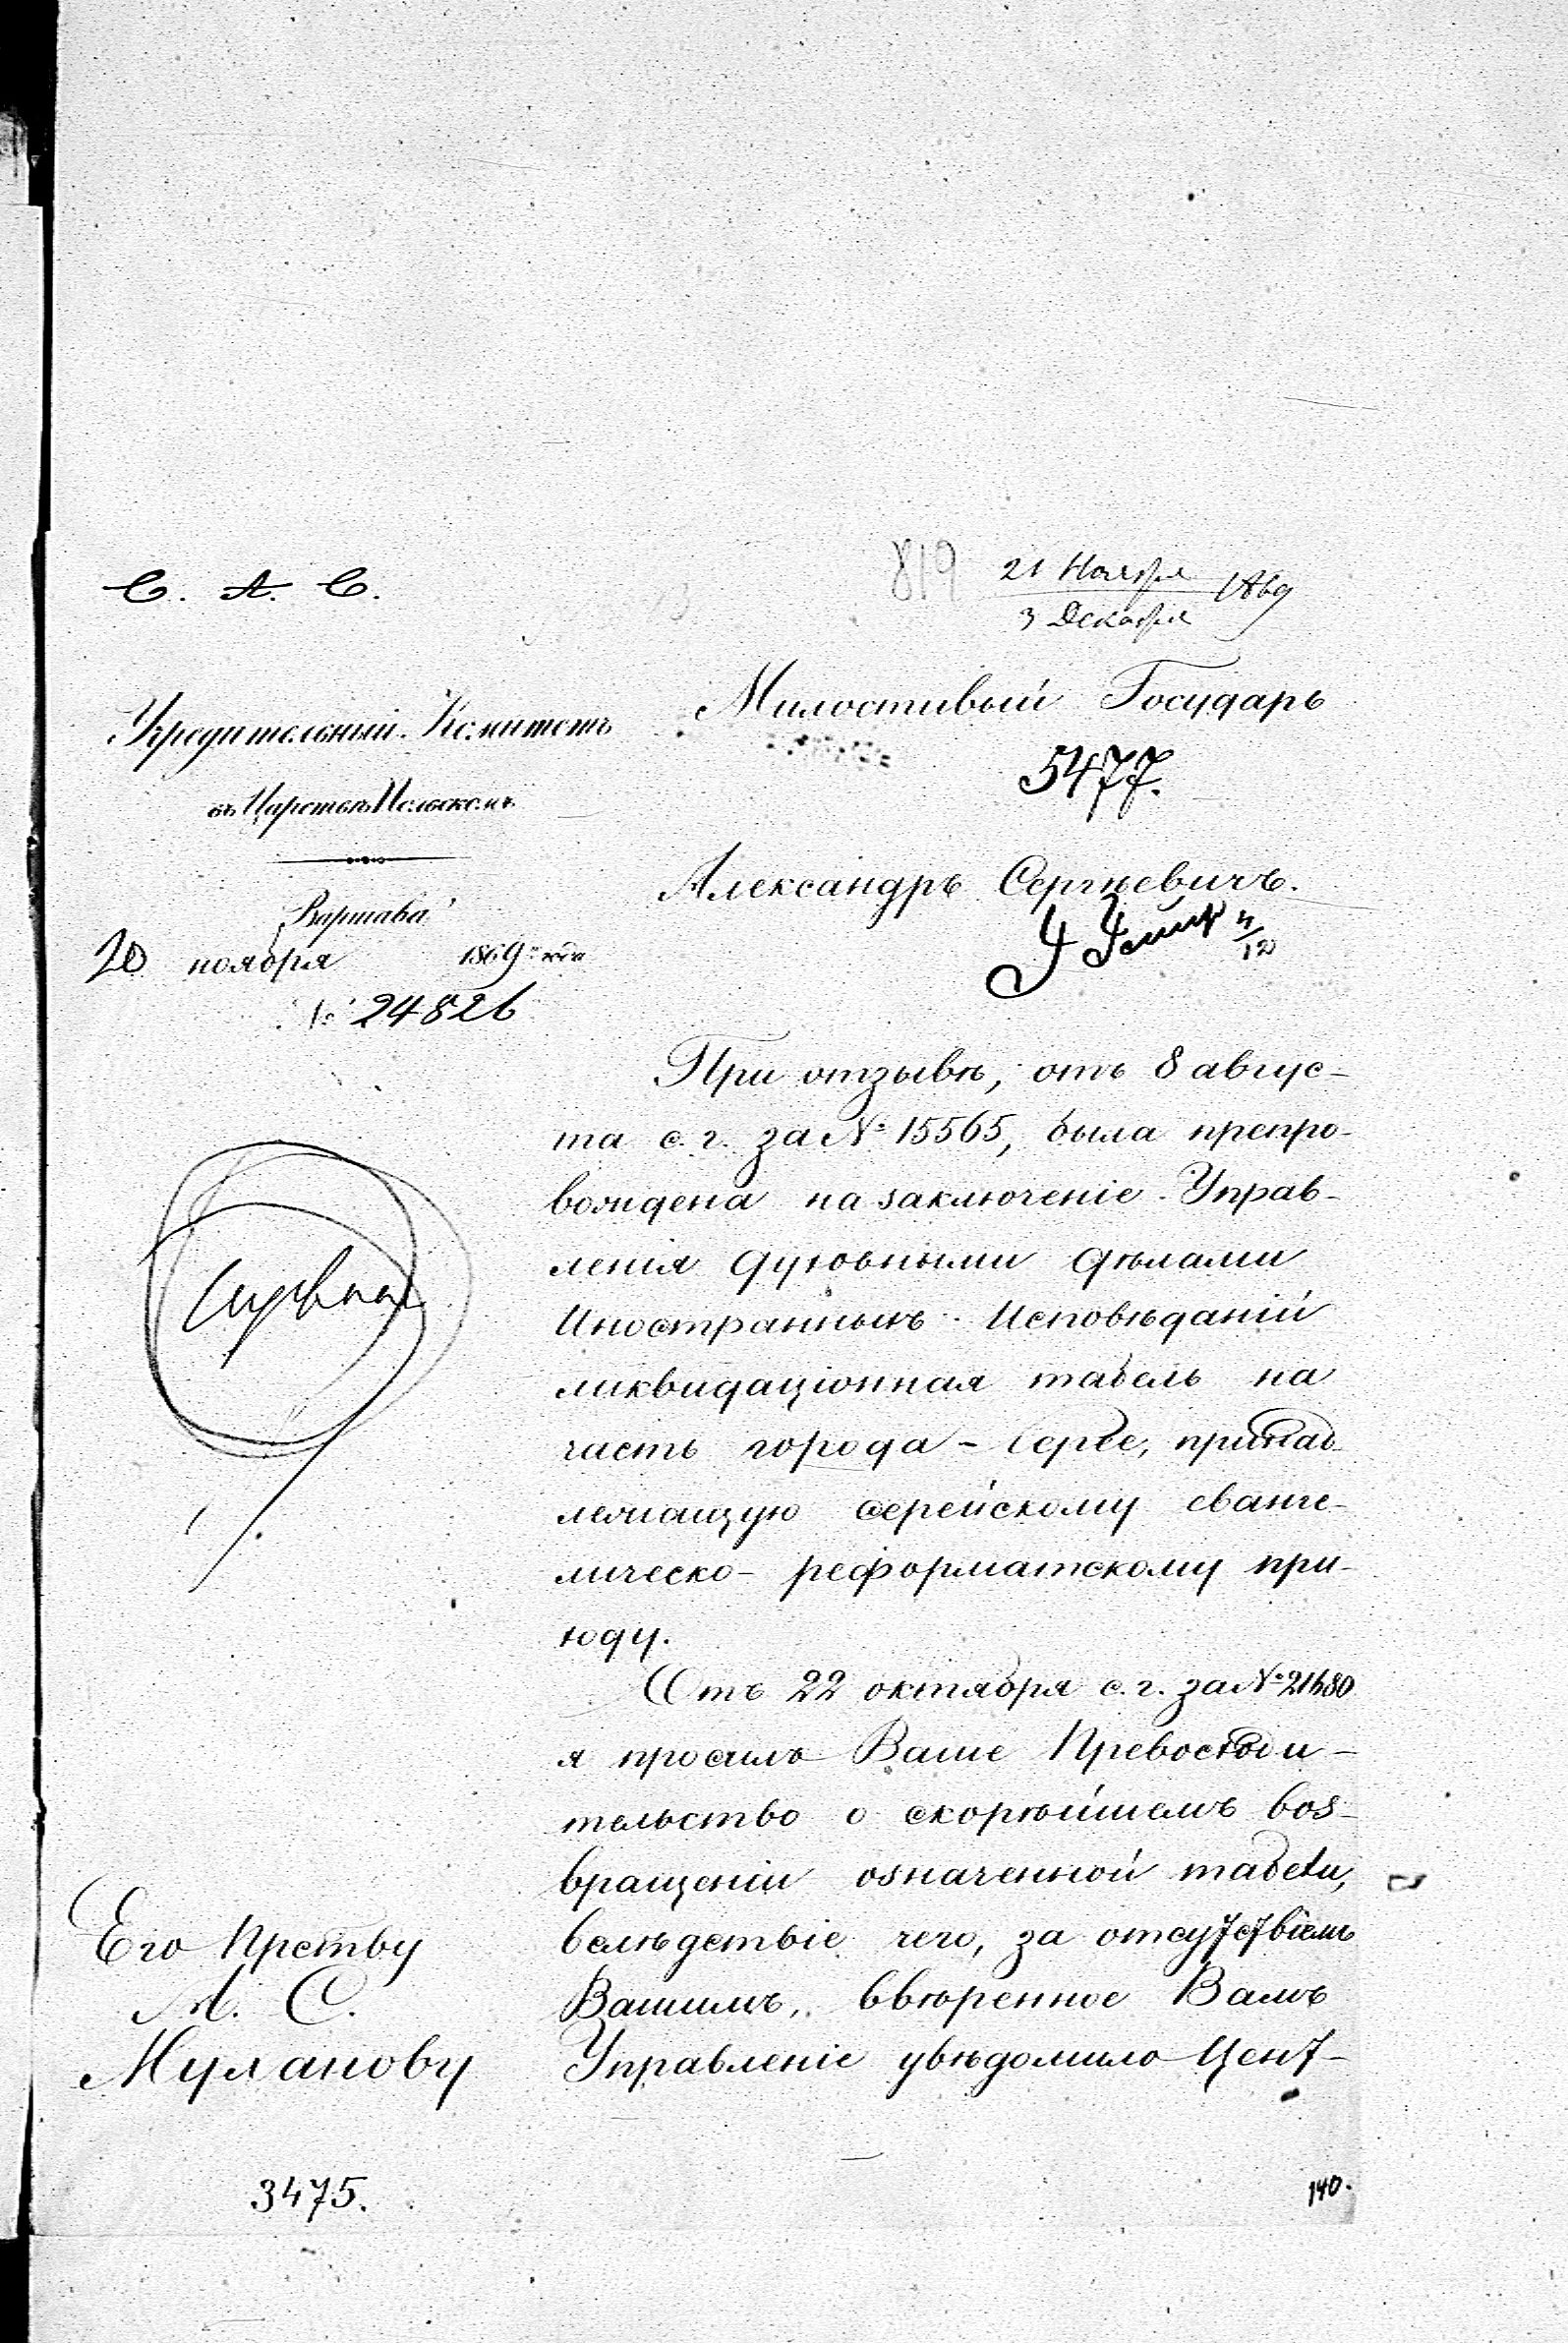 С. А. С.
819
21 Ноября
3 Декабря
Учредительный Комитетъ
въ Царствѣ Польскомъ
Варшава
20 ноября 1869 года
№ 24826
Милостивый Государь
5477.
Александръ Сергѣевичъ.
4/12
При отзывѣ, отъ 8 авгус-
та с. г. за № 15565, была препро-
вождена на заключеніе Управ-
ленія духовными дѣлами
Иностранныхъ Исповѣданій
ликвидаціонная табель на
часть города Серее, принад-
лежащую серейскому еванге-
лическо-реформатскому при-
ходу.
Отъ 22 октября с. г. за №
я просилъ Ваше Превосходи-
тельство о скорѣйшемъ воз-
вращеніи означенной табели,
вслѣдствіе чего, за отсутствіемъ
Вашимъ, ввѣренное Вамъ
Управленіе увѣдомило Цент-
Его Прству
А. С.
Муханову
3475.
140.